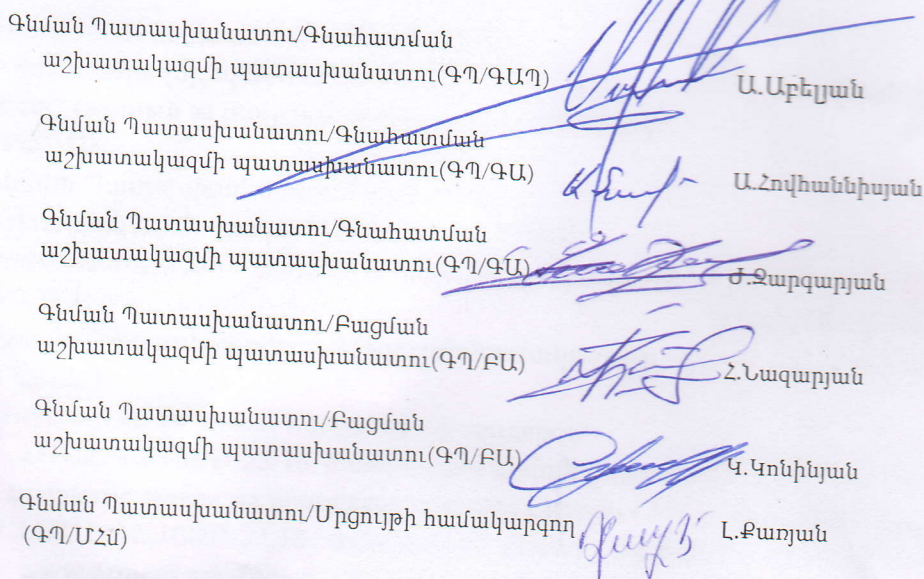 Գնման Պատասխանատու/Գնահատման
աշխատակազմի պատասխանատու(ԳՊ/ԳԱՊ) Ա.Աբելյան
Գնման Պատասխանատու/Գնահատման
աշխատակազմի պատասխանատու(ԳՊ/ԳԱ) Ա.Հովհաննիսյան
Գնման Պատասխանատու/Գնահատման
աշխատակազմի պատասխանատու(ԳՊ/ԳԱ) Ժ.Զարգարյան
Գնման Պատասխանատու/Բացման
աշխատակազմի պատասխանատու(ԳՊ/ԲԱ) Հ.Նազարյան
Գնման Պատասխանատու/Բացման
աշխատակազմի պատասխանատու(ԳՊ/ԲԱ) Կ.Կոնինյան
Գնման Պատասխանատու/Մրցույթի համակարգող Լ.Քառյան
(ԳՊ/ՄՀմ)